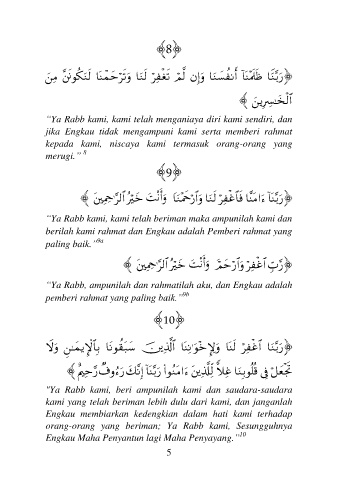 ﴾8﴿
﴿رَبَّنَا ظَلَمْنَآ أَنفُسَنَا وَإِن لَّمْ تَغْفِرْ لَنَا وَتَرْحَمْنَا لَنَكُونَنَّ مِنَ
ٱلْخَٰسِرِينَ ﴾
“Ya Rabb kami, kami telah menganiaya diri kami sendiri, dan
jika Engkau tidak mengampuni kami serta memberi rahmat
kepada kami, niscaya kami termasuk orang-orang yang
merugi.” 8
﴾9﴿
﴿رَبَّنَآ ءَامَنَّا فَٱغْفِرْ لَنَا وَٱرْحَمْنَا وَأَنْتَ خَيْرُ ٱلرَّٰحِمِينَ ﴾
“Ya Rabb kami, kami telah beriman maka ampunilah kami dan
berilah kami rahmat dan Engkau adalah Pemberi rahmat yang
paling baik.”9a
﴿رَّبِّ ٱغْفِرْ وَٱرْحَمْ وَأَنْتَ خَيْرُ ٱلرَّٰحِمِينَ ﴾
“Ya Rabb, ampunilah dan rahmatilah aku, dan Engkau adalah
pemberi rahmat yang paling baik.”9b
﴾10﴿
﴿رَبَّنَا ٱغْفِرْ لَنَا وَلِإِخْوَٰنِنَا ٱلَّذِينَ سَبَقُونَا بِٱلْإِيمَٰنِ وَلَا
تَجْعَلْ فِى قُلُوبِنَا غِلًّا لِّلَّذِينَ ءَامَنُوا۟ رَبَّنَآ إِنَّكَ رَءُوفٌ رَّحِيمٌ﴾
"Ya Rabb kami, beri ampunilah kami dan saudara-saudara
kami yang telah beriman lebih dulu dari kami, dan janganlah
Engkau membiarkan kedengkian dalam hati kami terhadap
orang-orang yang beriman; Ya Rabb kami, Sesungguhnya
Engkau Maha Penyantun lagi Maha Penyayang.”10
5